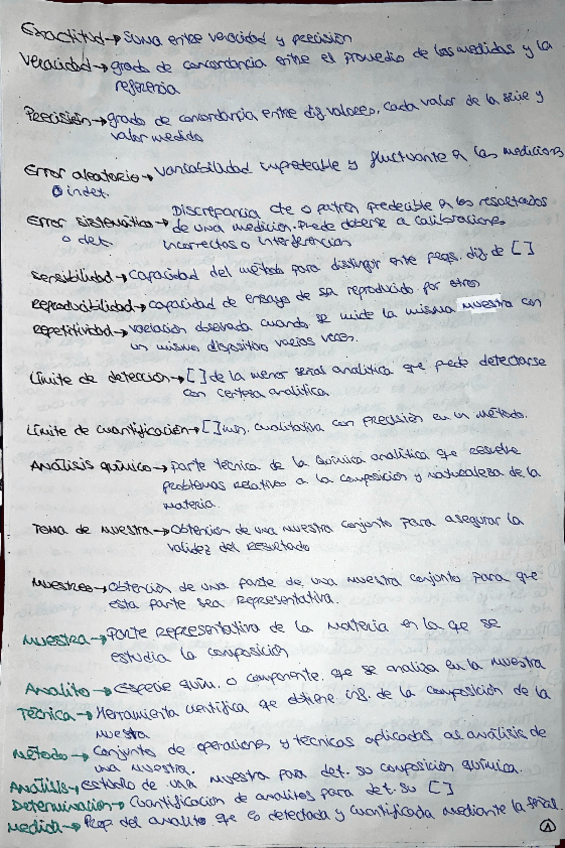 Exactitud → Suma entre veracidad y precisión
Veracidad → grado de concordancia entre el promedio de las medidas y la
referencia
Precisión → grado de concordancia entre dif valores. Cada valor de la serie y
valor medido
Error aleatorio → variabilidad impredecible y fluctuante en las mediciones
o indet.
Discrepancia cte o patrón predecible en los resultados
Error sistemático → de una medición. Puede deberse a calibraciones
o det. incorrectas o interferencias
Sensibilidad → capacidad del método para distinguir entre peqs. dif. de [ ]
Reproducibilidad → capacidad de ensayo de ser reproducido por otros
Repetitividad → variación observada cuando se mide la misma muestra con
un mismo dispositivo varias veces.
Límite de detección → [ ] de la menor señal analítica que puede detectarse
con certeza analítica
Límite de cuantificación → [ ] mín. cualitativa con precisión en un método.
Análisis químico → Parte técnica de la Química analítica que resuelve
problemas relativos a la composición y naturaleza de la
materia.
Toma de muestra → Obtención de una muestra conjunto para asegurar la
validez del resultado
Muestreo → Obtención de una parte de una muestra conjunto para que
esta parte sea representativa.
Muestra → Parte representativa de la materia en la que se
estudia la composición
Analito → Especie quím. o componente que se analiza en la muestra
Técnica → Herramienta científica que obtiene inf. de la composición de la
muestra
Método → Conjunto de operaciones y técnicas aplicadas al análisis de
una muestra.
Análisis → estudio de una muestra para det. su composición química.
Determinación → Cuantificación de analitos para det. su [ ]
Medida → Prop. del analito que es detectada y cuantificada mediante la señal.
1